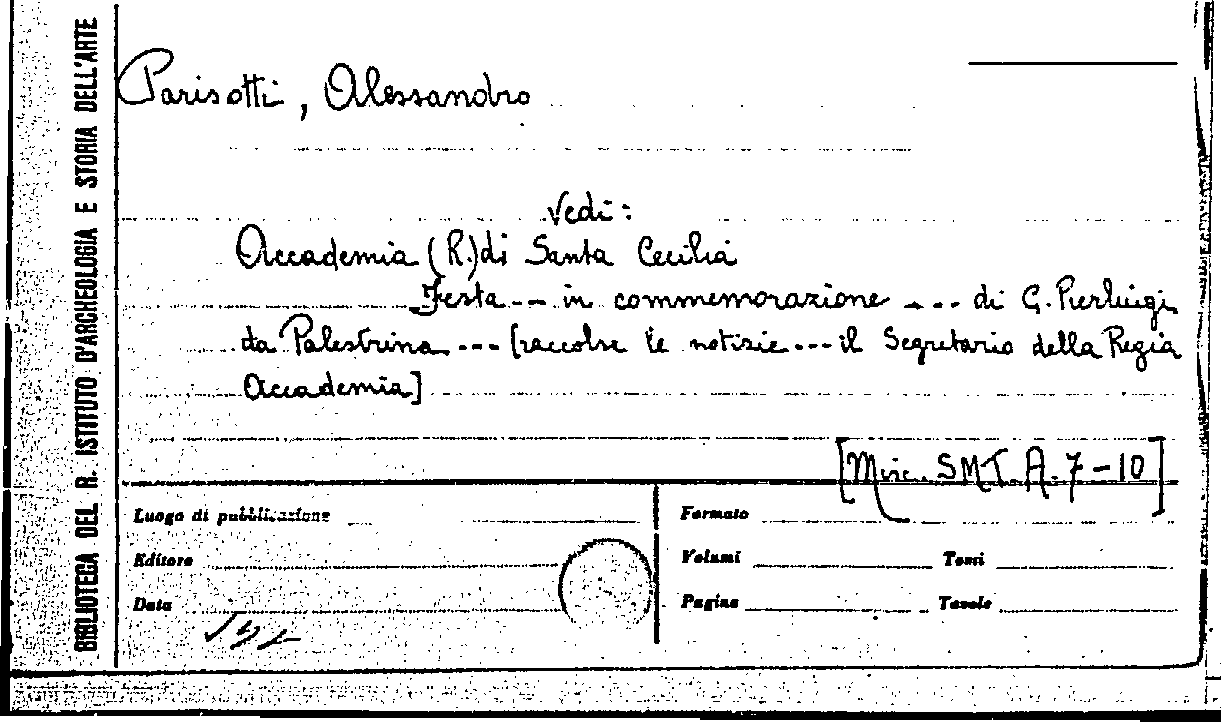 BIBLIOTECA DEL R. ISTITUTO D'ARCHEOLOGIA E STORIA DELL'ARTE
Parisotti, Alessandro
Vedi:
Accademia (R.) di Santa Cecilia
Festa --- in commemorazione --- di G. Pierluigi
da Palestrina --- [raccolse le notizie --- il Segretario della Regia
Accademia]
[Misc. SMT. A. 7-10]
Luogo di pubblicazione
Formato
Editore
Volumi Tomi
Data
Pagine Tavole